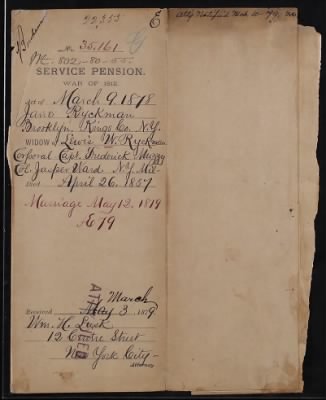 22,353
Atty Notified Mch
No. 35,161
802-80-55
SERVICE PENSION.
WAR OF 1812.
Act of March 9, 1878
Jane Ryckman
Brooklyn Kings Co. N.Y.
WIDOW of Lewis W. Ryckman
Corporal Capt. Frederick
Col. Jasper Ward N.Y. Mil
Died April 26. 1857
Marriage May 12. 1819
AE 79
March
Received May 3. 1879
Wm. H. Lusk
12 Centre Street
New York City-
Attorney